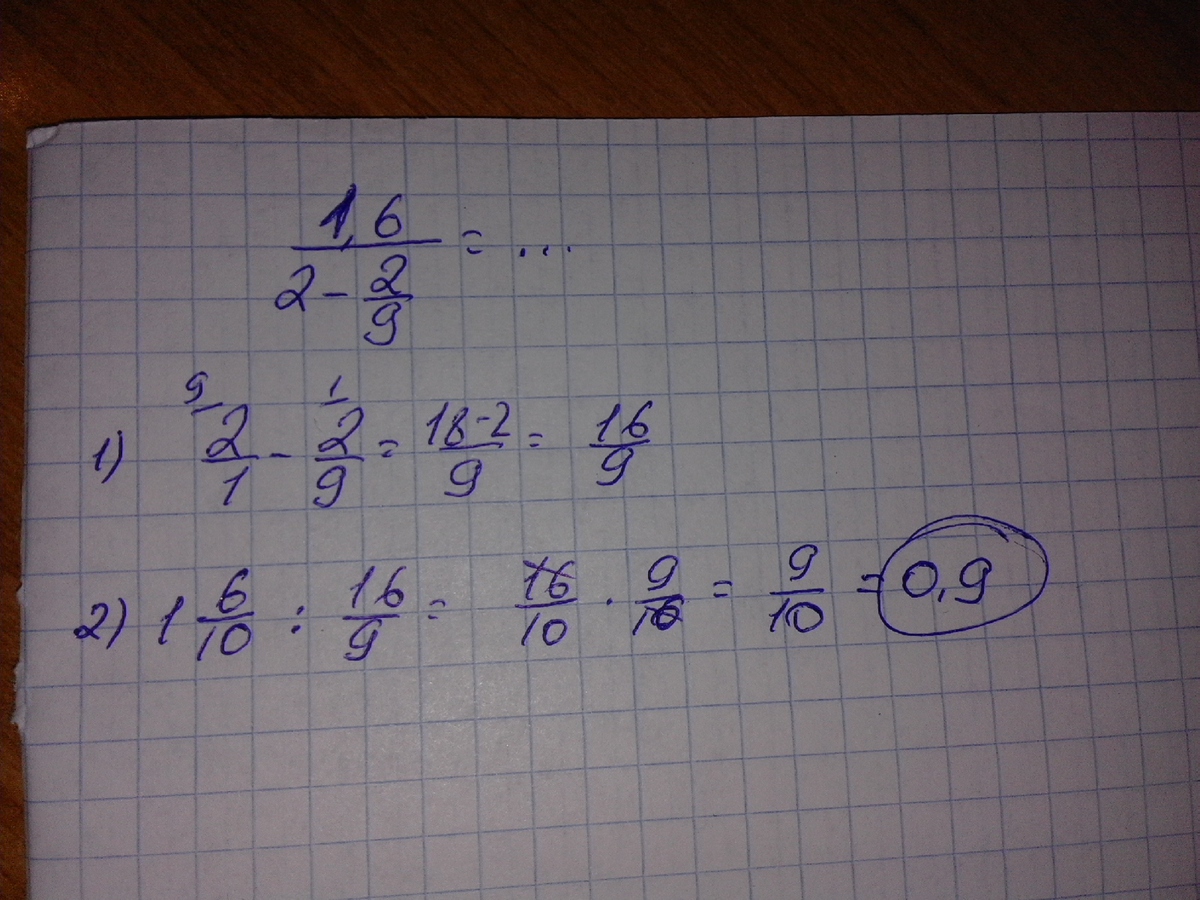 1,6 / (2 - 2/9) = ...
1) 9 2/1 - 1 2/9 = 18-2/9 = 16/9
2) 1 6/10 : 16/9 = 16/10 · 9/16 = 9/10 = 0,9